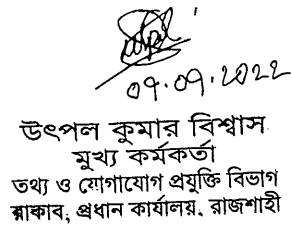 ০৭.০৭.২০২২
উৎপল কুমার বিশ্বাস
মুখ্য কর্মকর্তা
তথ্য ও যোগাযোগ প্রযুক্তি বিভাগ
রাকাব, প্রধান কার্যালয়, রাজশাহী